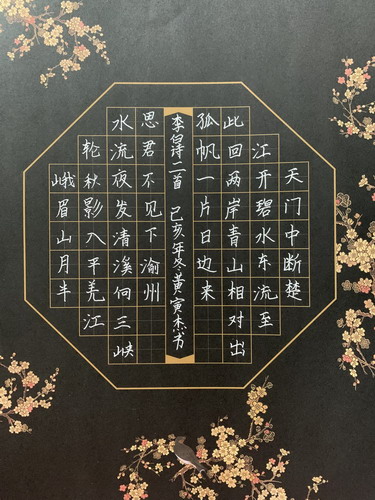 天门中断楚
江开碧水东流至
此回两岸青山相对出
孤帆一片日边来
峨眉山月半
轮秋影入平羌江
水流夜发清溪向三峡
思君不见下渝州
李白诗二首 己亥年冬黄寅杰书